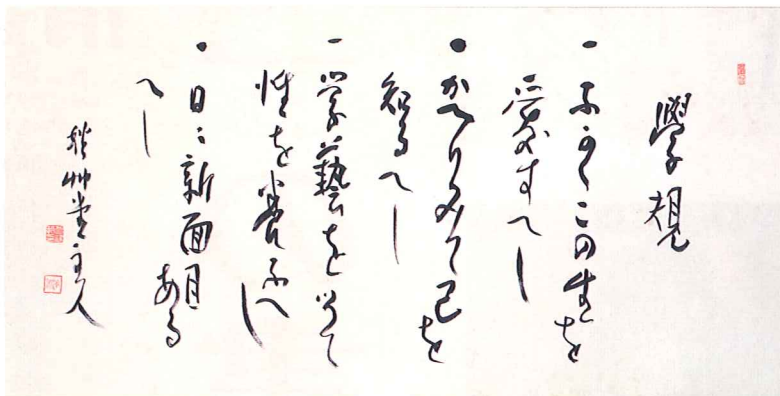 學規
一 ふかくこの生を
愛すへし
一 かへりみて己を
知るへし
一 学藝を以て
性を養ふへし
一 日々新面目ある
へし
秋艸堂主人